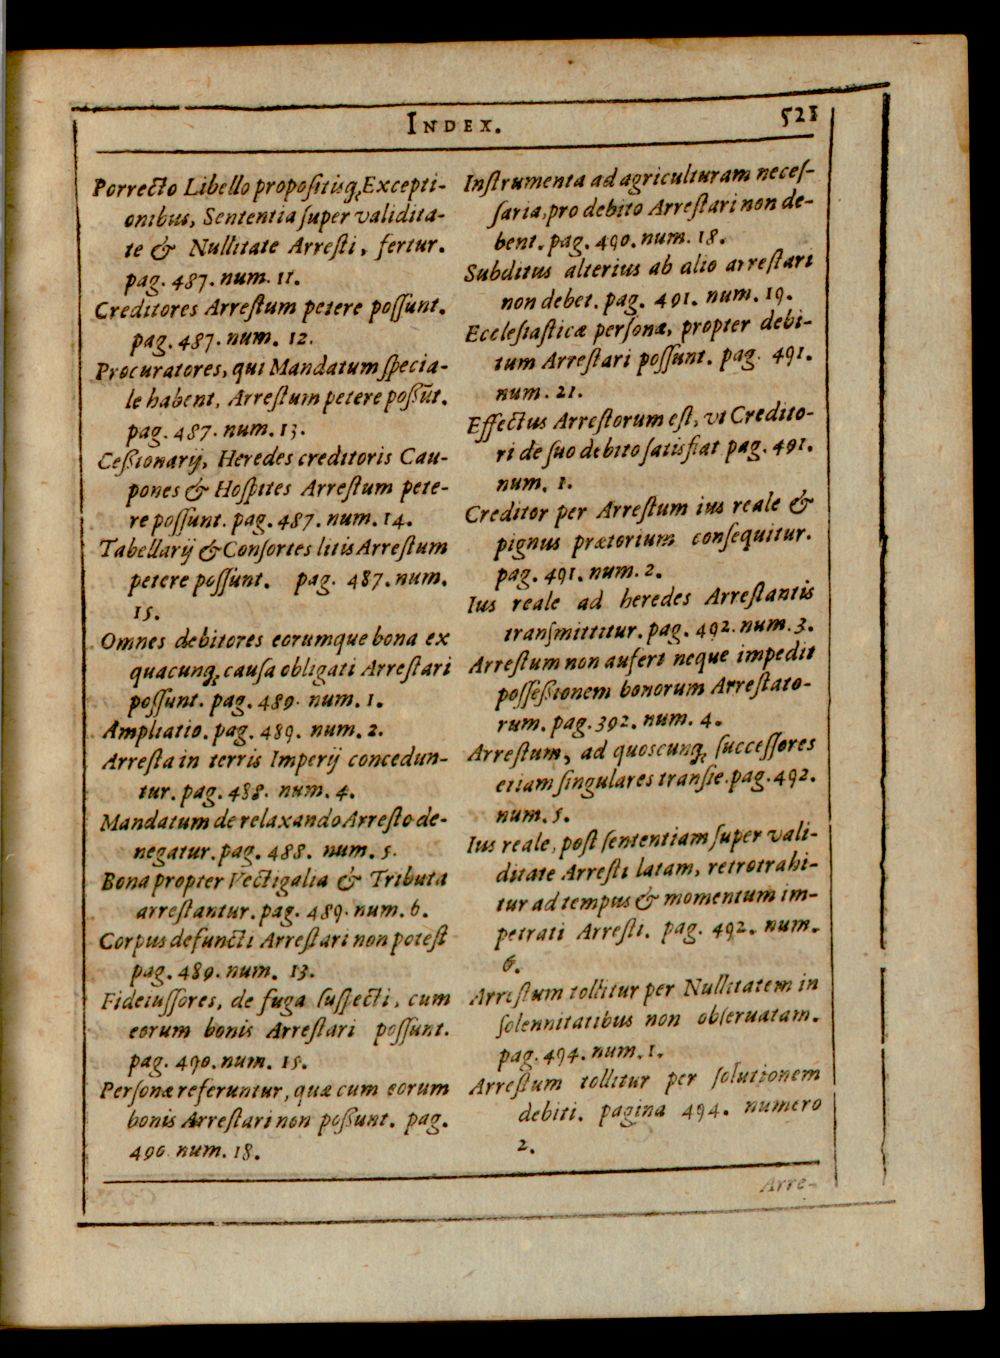 INDEX.
521
Porrecto Libello propositisq́; Excepti-
onibus, Sententia ſuper validita-
te & Nullitate Arreſti, fertur.
pag. 487. num. 11.
Creditores Arreſtum petere poſſunt.
pag. 487. num. 12.
Procuratores, qui Mandatum ſpecia-
le habent, Arreſtum petere poſsūt.
pag. 487. num. 13.
Ceßionarij, Heredes creditoris Cau-
pones & Hoſpites Arreſtum pete-
re poſſunt. pag. 487. num. 14.
Tabellarij & Conſortes litis Arreſtum
petere poſſunt. pag. 487. num.
15.
Omnes debitores eorumque bona ex
quacunq; cauſa obligati Arreſtari
poſſunt. pag. 489. num. 1.
Ampliatio. pag. 489. num. 2.
Arreſta in terris Imperij concedun-
tur. pag. 488. num. 4.
Mandatum de relaxando Arreſto de-
negatur. pag. 488. num. 5.
Bona propter Vectigalia & Tributa
arreſtantur. pag. 489. num. 6.
Corpus defuncti Arreſtari non poteſt
pag. 489. num. 13.
Fideiuſſores, de fuga ſuſpecti, cum
eorum bonis Arreſtari poſſunt.
pag. 490. num. 15.
Perſonæ referuntur, quæ cum eorum
bonis Arreſtari non poßunt. pag.
490. num. 18.
Inſtrumenta ad agriculturam neceſ-
ſaria, pro debito Arreſtari non de-
bent. pag. 490. num. 18.
Subditus alterius ab alio arreſtari
non debet. pag. 491. num. 19.
Eccleſiaſticæ perſonæ, propter debi-
tum Arreſtari poſſunt. pag. 491.
num. 21.
Effectus Arreſtorum eſt, vt Credito-
ri de ſuo debito ſatisfiat pag. 491.
num. 1.
Creditor per Arreſtum ius reale &
pignus prætorium conſequitur.
pag. 491. num. 2.
Ius reale ad heredes Arreſtantis
tranſmittitur. pag. 492. num. 3.
Arreſtum non aufert neque impedit
poſſeßionem bonorum Arreſtato-
rum. pag. 392. num. 4.
Arreſtum, ad quoscunq; ſucceſſores
etiam ſingulares tranſie. pag. 492.
num. 5.
Ius reale, poſt ſententiam ſuper vali-
ditate Arreſti latam, retrotrahi-
tur ad tempus & momentum im-
petrati Arreſti. pag. 492. num.
6.
Arreſtum tollitur per Nullitatem in
ſolennitatibus non obſeruatam.
pag. 494. num. 1.
Arreſtum tollitur per ſolutionem
debiti. pagina 494. numero
2.
Arre-